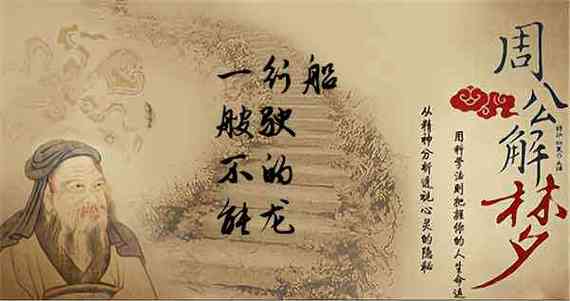 一艘不能
行驶的龙
船
周公解梦
用科学法则把握你的人生命运
从精神分析透视心灵的隐秘